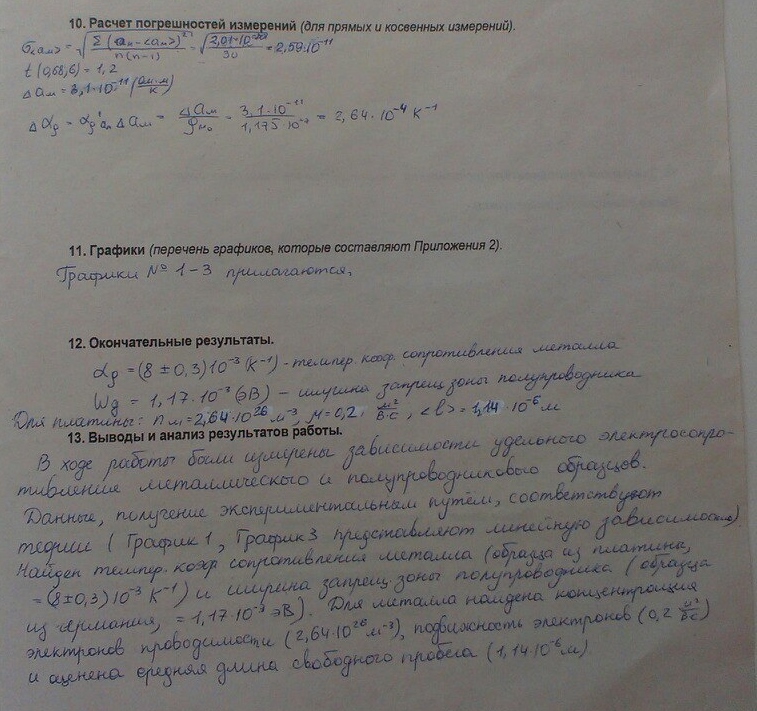 10. Расчет погрешностей измерений (для прямых и косвенных измерений).
σ<aм> = √(Σ(aм-<aм>)²/n(n-1)) = √(2,01·10⁻²⁰/30) = 2,59·10⁻¹¹
t(0,68,6) = 1,2
Δaм = 3,1·10⁻¹¹ (Ом·м/К)
Δαρ = αρ'aм Δaм = Δaм/ρм₀ = 3,1·10⁻¹¹/1,175·10⁻⁷ = 2,64·10⁻⁴ К⁻¹
11. Графики (перечень графиков, которые составляют Приложения 2).
Графики № 1-3 прилагаются.
12. Окончательные результаты.
αρ = (8 ± 0,3)10⁻³ (К⁻¹) - темпер. коэф. сопротивления металла
Wg = 1,17·10⁻³ (эВ) – ширина запрещ зоны полупроводника
Для платины: nм = 2,64·10²⁶ м⁻³, μ = 0,2 м²/В·с, <l> = 1,14·10⁻⁶ м
13. Выводы и анализ результатов работы.
В ходе работы были измерены зависимости удельного электросопро-
тивление металлического и полупроводникового образцов.
Данные, получение экспериментальным путём, соответствуют
теории (График 1, График 3 представляют линейную зависимость)
Найден темпер. коэф сопротивления металла (образца из платины,
= (8±0,3)10⁻³ К⁻¹) и ширина запрещ. зоны полупроводника (образца
из германия, = 1,17·10⁻³ эВ). Для металла найдена концентрация
электронов проводимости (2,64·10²⁶ м⁻³), подвижность электронов (0,2 м²/Вс)
и оценена средняя длина свободного пробега (1,14·10⁻⁶ м).